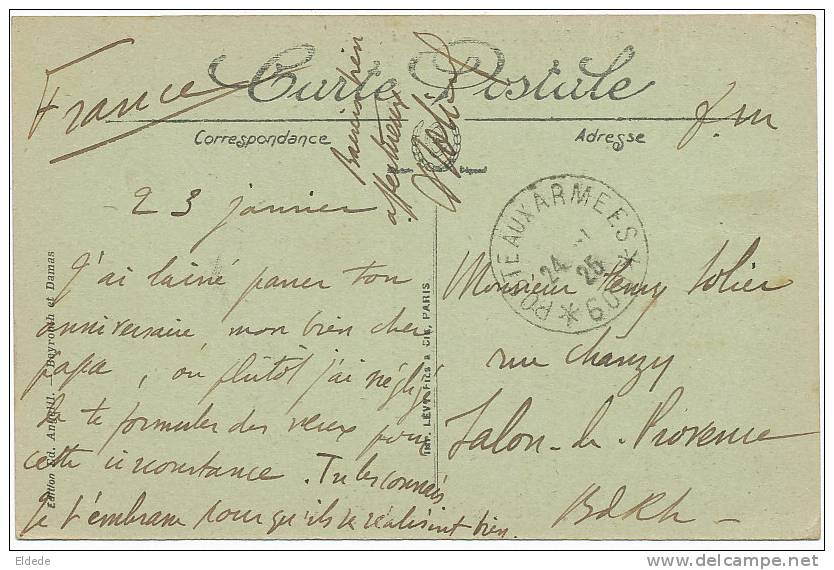 France
Carte Postale
f.m
Correspondance
Adresse
affectueux
23 janvier
J'ai laissé passer ton
anniversaire mon bien cher
papa, ou plutôt j'ai négligé
de te formuler des vœux pour
cette circonstance. Tu les connais
Je t'embrasse pour qu'ils se réalisent bien.
POSTE AUX ARMEES
24 -1
25
* 600 *
Monsieur Henry
rue Chanzy
Salon-de-Provence
BdRh -
Edition Ed. Angelil. — Beyrouth et Damas
IMP. LÉVY FILS & CIE, PARIS
Eldede
www.delcampe.net